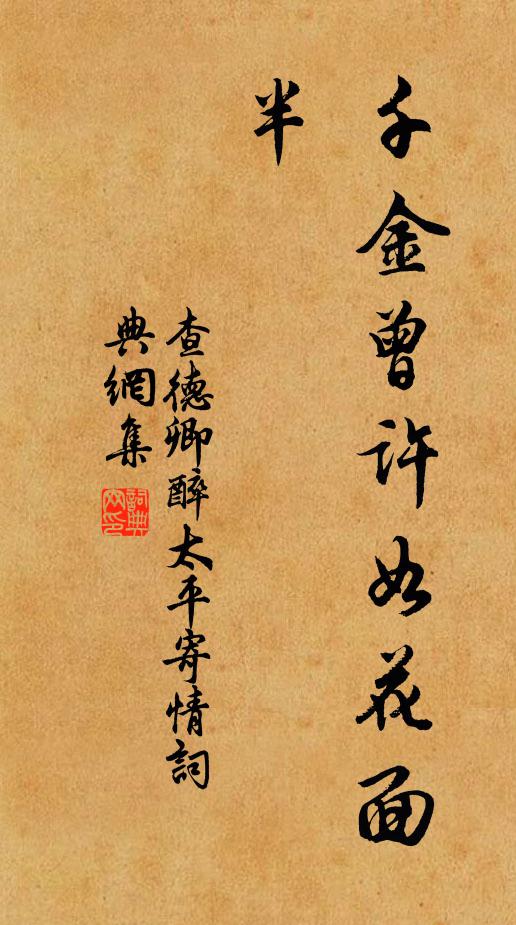 千金曾許如花面
半
查德卿醉太平寄情詞
典網集
詞典网印